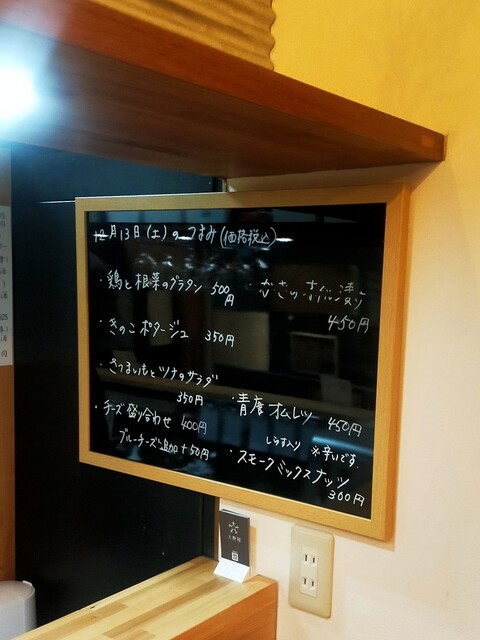 12月13日(土)のつまみ(価格税込)
・鶏と根菜のグラタン 500円
・きのこポタージュ 350円
・さつまいもとツナのサラダ
350円
・チーズ盛り合わせ 400円
ブルーチーズ追加+50円
450円
・青唐オムレツ 450円
しらす入り ※辛いです。
・スモークミックスナッツ
300円